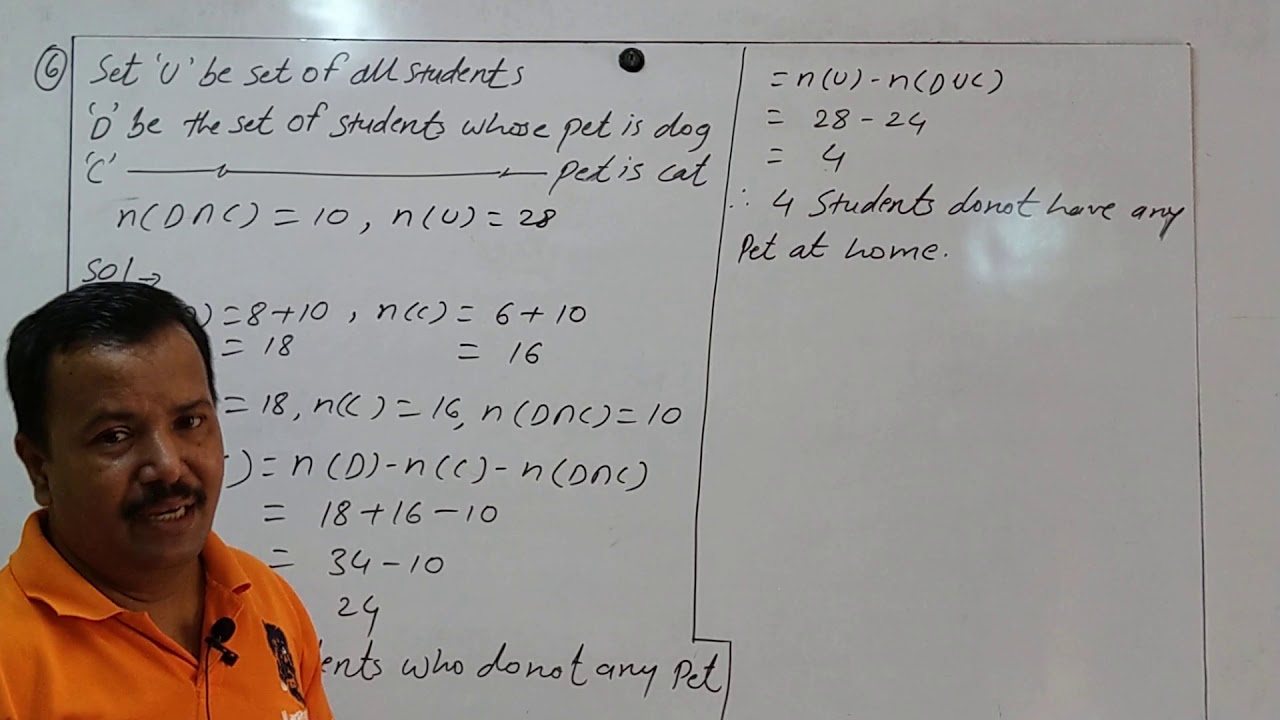 ⑥ Set 'U' be set of all students
'D' be the set of students whose pet is dog
'C' ———————— pet is cat
n(D∩C) = 10, n(U) = 28
Sol →
) = 8+10, n(C) = 6+10
= 18 = 16
= 18, n(C) = 16, n(D∩C) = 10
) = n(D) - n(C) - n(D∩C)
= 18+16-10
= 34-10
24
ents who do not any Pet
= n(U) - n(D∪C)
= 28-24
= 4
∴ 4 Students do not have any
Pet at home.